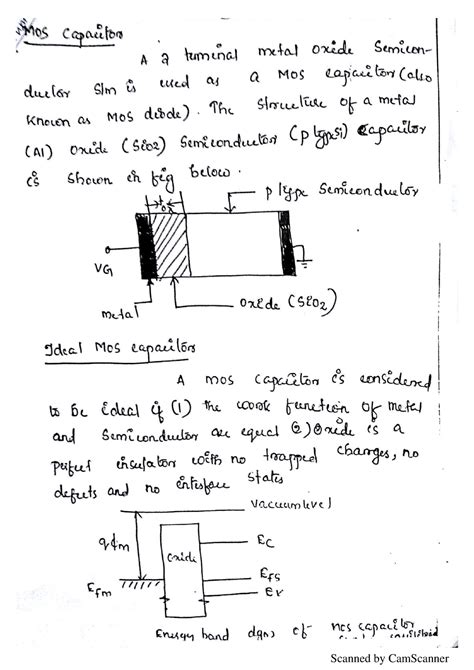 MOS Capacitor
A 2 terminal metal oxide Semicon-
ductor S/m is used as a MOS capacitor (also
Known as MOS diode). The structure of a metal
(Al) oxide (SiO2) Semiconductor (p type Si) Capacitor
is shown in fig below.
tox
p type Semiconductor
VG
metal
oxide (SiO2)
Ideal MOS capacitor
A mos capacitor is considered
to be ideal if (1) the work function of metal
and semiconductor are equal (2) Oxide is a
perfect insulator with no trapped charges, no
defects and no interface states
vacuum level
qɸm
oxide
Ec
Efm
Efs
Ev
Energy band dgm of mos capacitor
Scanned by CamScanner